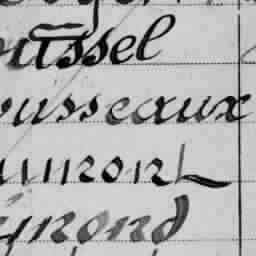 oussel
ousseaux
umont
ymond